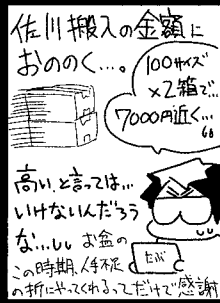 佐川搬入の金額に
おののく…。
100サイズ
×2箱で…
7000円近く…
高い、と言っては…
いけないんだろう
な…しし
お盆の
この時期、人手不足
の折にやってくれるってだけで感謝
たぶ